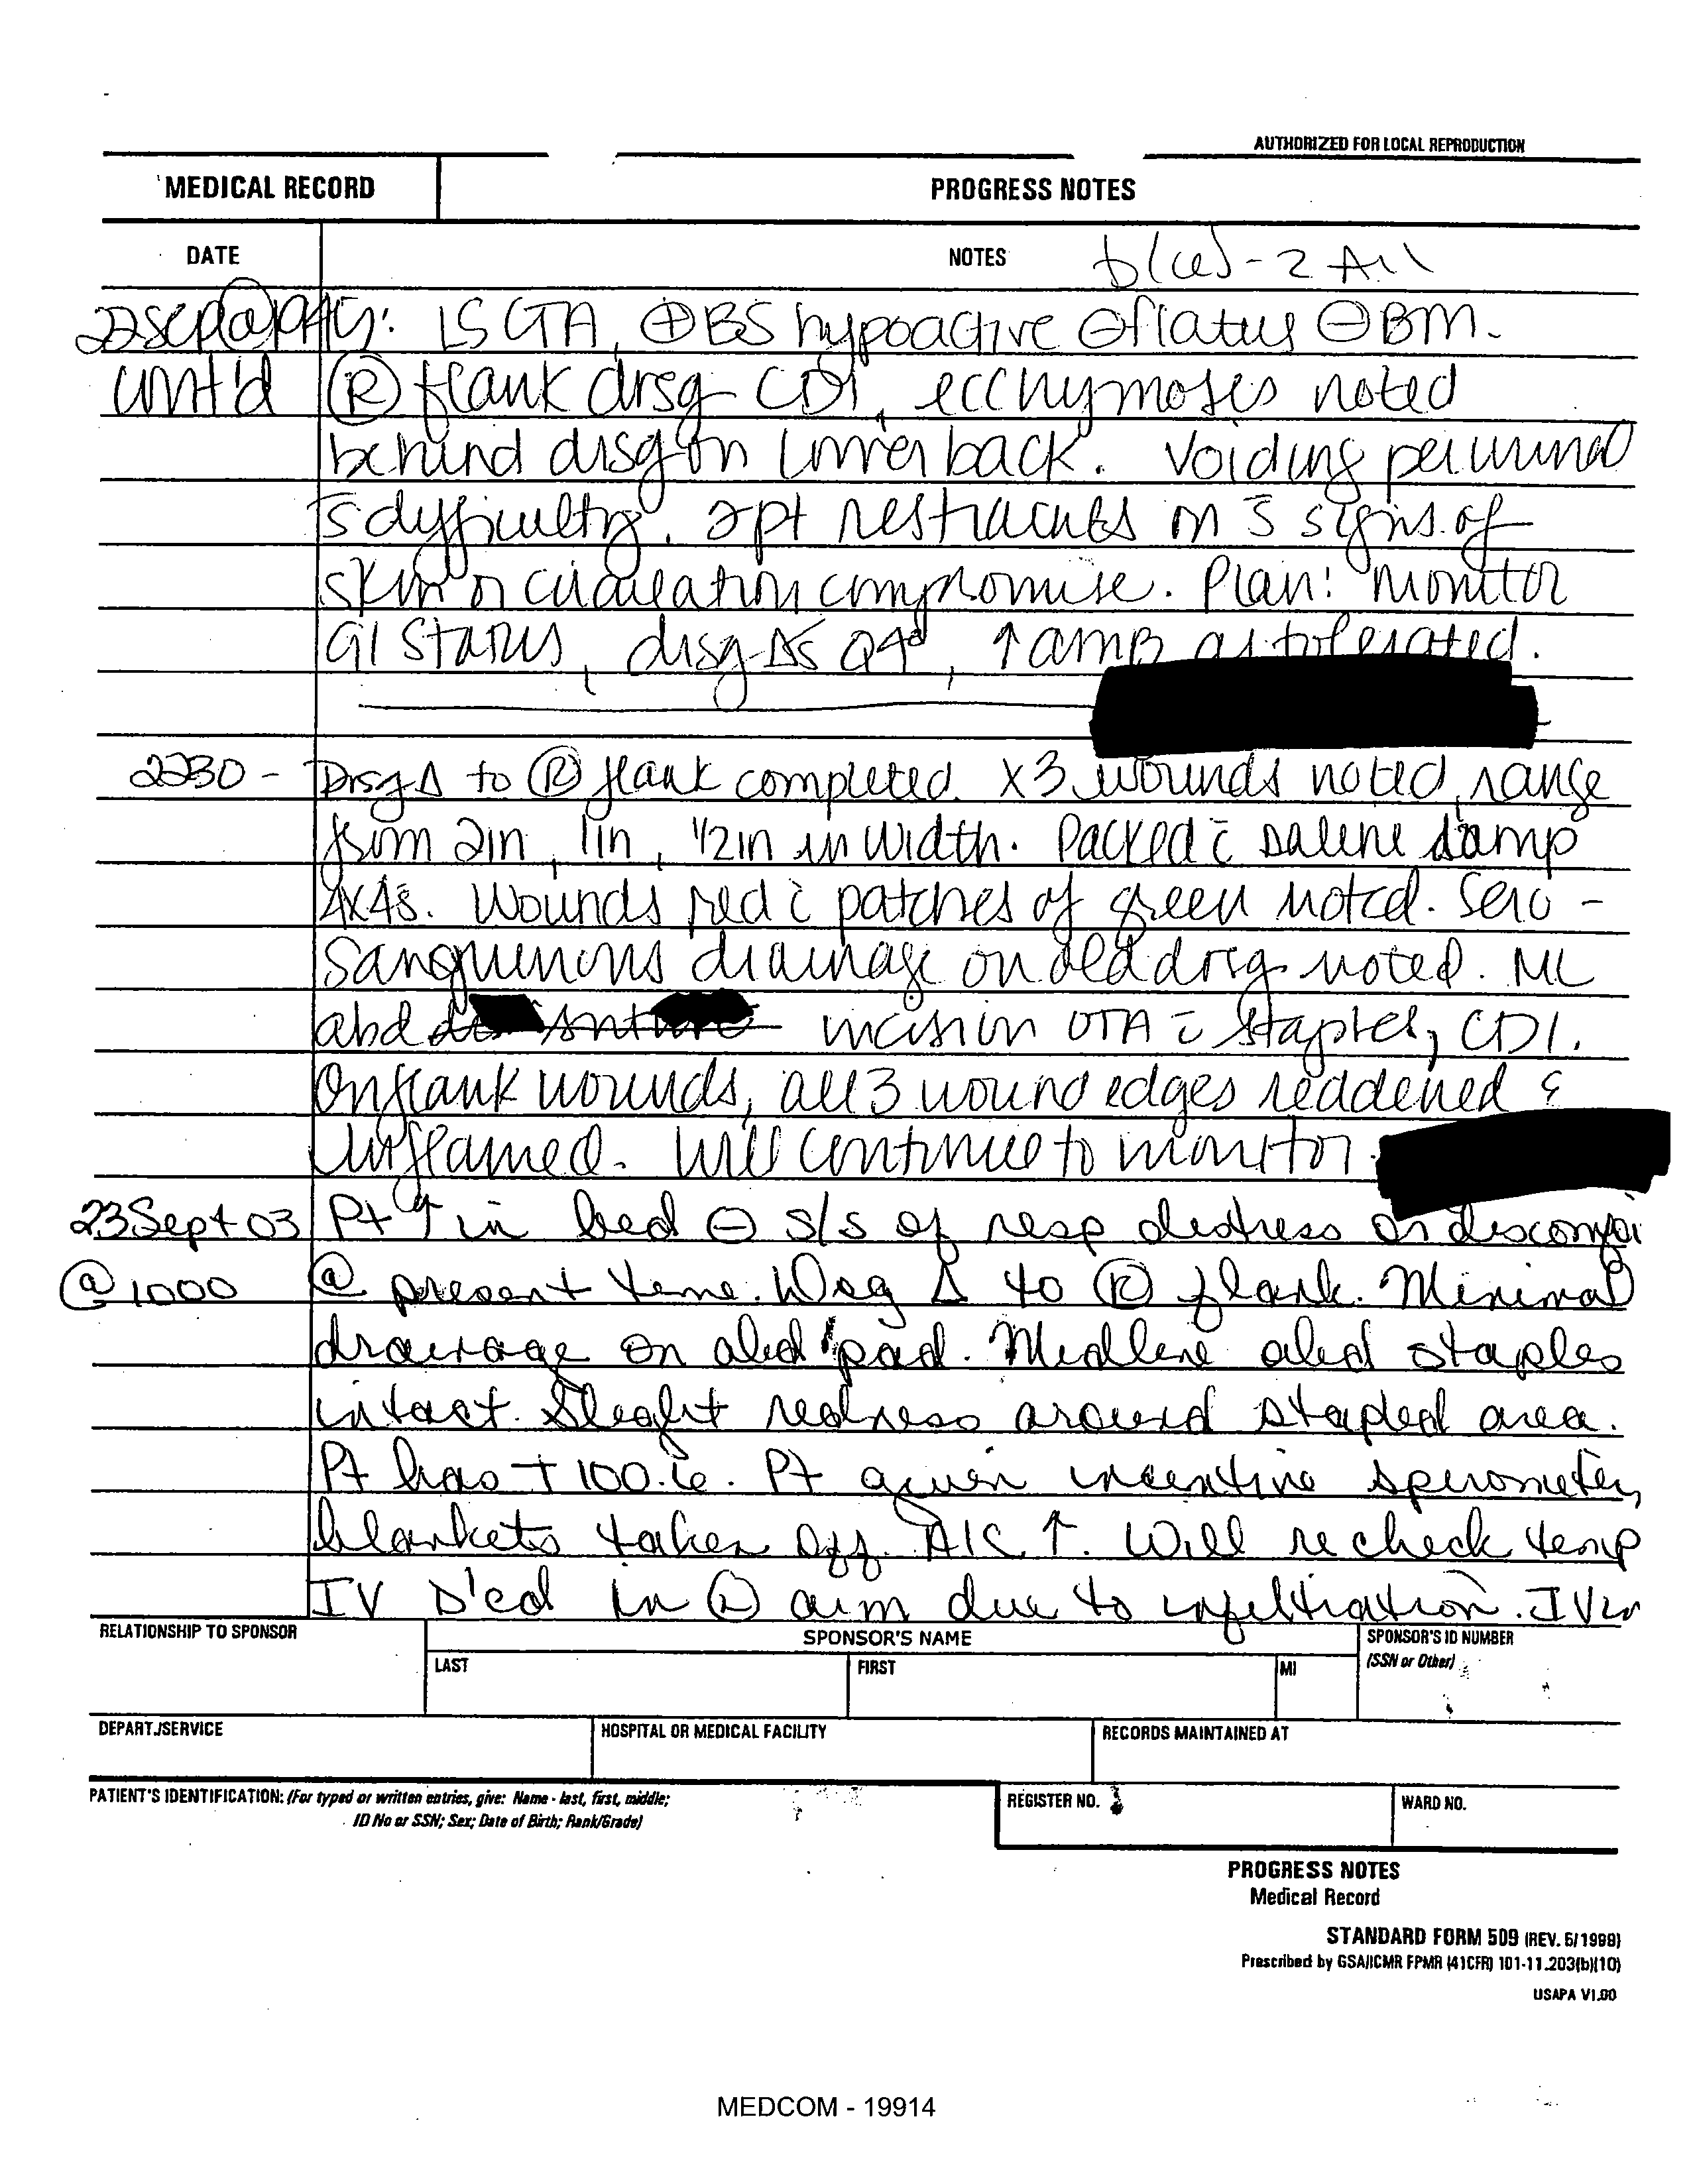 AUTHORIZED FOR LOCAL REPRODUCTION
MEDICAL RECORD
PROGRESS NOTES
DATE
NOTES
b(6)-2 All
22Sep@ : LS CTA, ⊕BS hypoactive ⊖flatus ⊖BM.
cont'd Ⓡ flank drsg CDI, ecchymoses noted
behind drsg on lower back. Voiding per urinal
s̄ dyfficulty. 2pt restraints on s̄ signs of
skin or circulation compromise. Plan: monitor
GI status, drsg Δs Q4°, ↑ amb as tolerated.
2230 - Drsg Δ to Ⓡ flank completed. X3 wounds noted, range
from 2in, 1in, 1/2in in width. Packed c̄ saline damp
4x4s. Wounds red c̄ patches of green noted. Sero-
sanguinous drainage on old drsg noted. ML
abd incision OTA c̄ staples, CDI.
On flank wounds, all 3 wound edges reddened &
inflamed. Will continue to monitor.
23Sept 03 Pt ↑ in bed ⊖ s/s of resp distress or discomfor
@ 1000 @ present time. Dsg Δ to Ⓡ flank. Minimal
drainage on abd pad. Midline abd staples
intact. Slight redness around stapled area.
Pt has T 100.6. Pt given incentive spirometer,
blankets taken off. A/C ↑. Will recheck temp
IV D'ced in arm due to infiltration. IV
RELATIONSHIP TO SPONSOR
SPONSOR'S NAME
SPONSOR'S ID NUMBER
(SSN or Other)
LAST
FIRST
MI
DEPART./SERVICE
HOSPITAL OR MEDICAL FACILITY
RECORDS MAINTAINED AT
PATIENT'S IDENTIFICATION: (For typed or written entries, give: Name - last, first, middle;
ID No or SSN; Sex; Date of Birth; Rank/Grade)
REGISTER NO.
WARD NO.
PROGRESS NOTES
Medical Record
STANDARD FORM 509 (REV. 5/1999)
Prescribed by GSA/ICMR FPMR (41CFR) 101-11.203(b)(10)
USAPA V1.00
MEDCOM - 19914